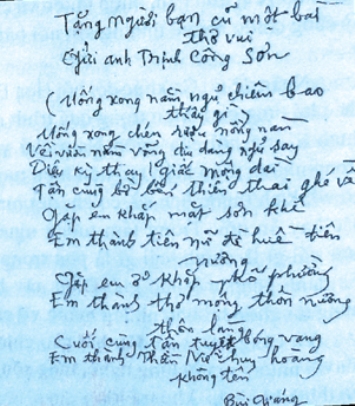 Tặng người bạn cũ một bài
thơ vui
Gửi anh Trịnh Công Sơn
(Uống xong nằm ngủ chiêm bao
thấy gì)
Uống xong chén rượu nồng nàn
Về nằm võng dịu dàng ngủ say
Diệu kỳ thay 1 giấc mộng dài
Tân cùng bờ bến thiên thai ghé về
Gặp em khắp mặt sơn khê
Em thành tiên nữ đề huề tiên
nương
Gặp em ở khắp phố phường
Em thành thơ mộng thôn nương
thôn làng
Cuối cùng tận tuyệt bóng vang
Em thành Thần Nữ huy hoàng
không tên
Bùi Giáng